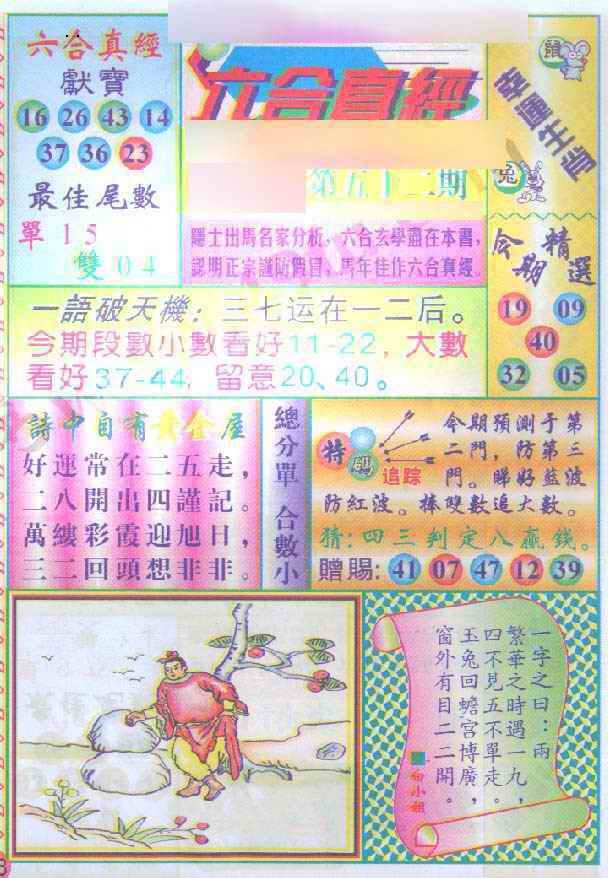 六合真經
獻寶
16 26 43 14
37 36 23
最佳尾數
單 15
雙 04
六合真經
第五十二期
隱士出馬名家分析，六合玄學盡在本書，
認明正宗謹防假冒，馬年佳作六合真經。
鼠
幸運生肖
兔
今期精選
19 09
40
32 05
一語破天機：三七运在一二后。
今期段數小數看好11-22，大數
看好37-44，留意20、40。
詩中自有黃金屋
好運常在二五走，
二八開出四謹記。
萬縷彩霞迎旭日，
三二回頭想非非。
總分單 合數小
特碼
追踪
今期預測于第
二門，防第三
門。睇好藍波
防紅波。捧雙數追大數。
猜：四三判定八贏錢。
贈賜：41 07 47 12 39
一字之曰：兩
繁華之時遇一九，
四不見五不單走。
玉兔回蟾宮博廣，
窗外有目二二開。
白小姐